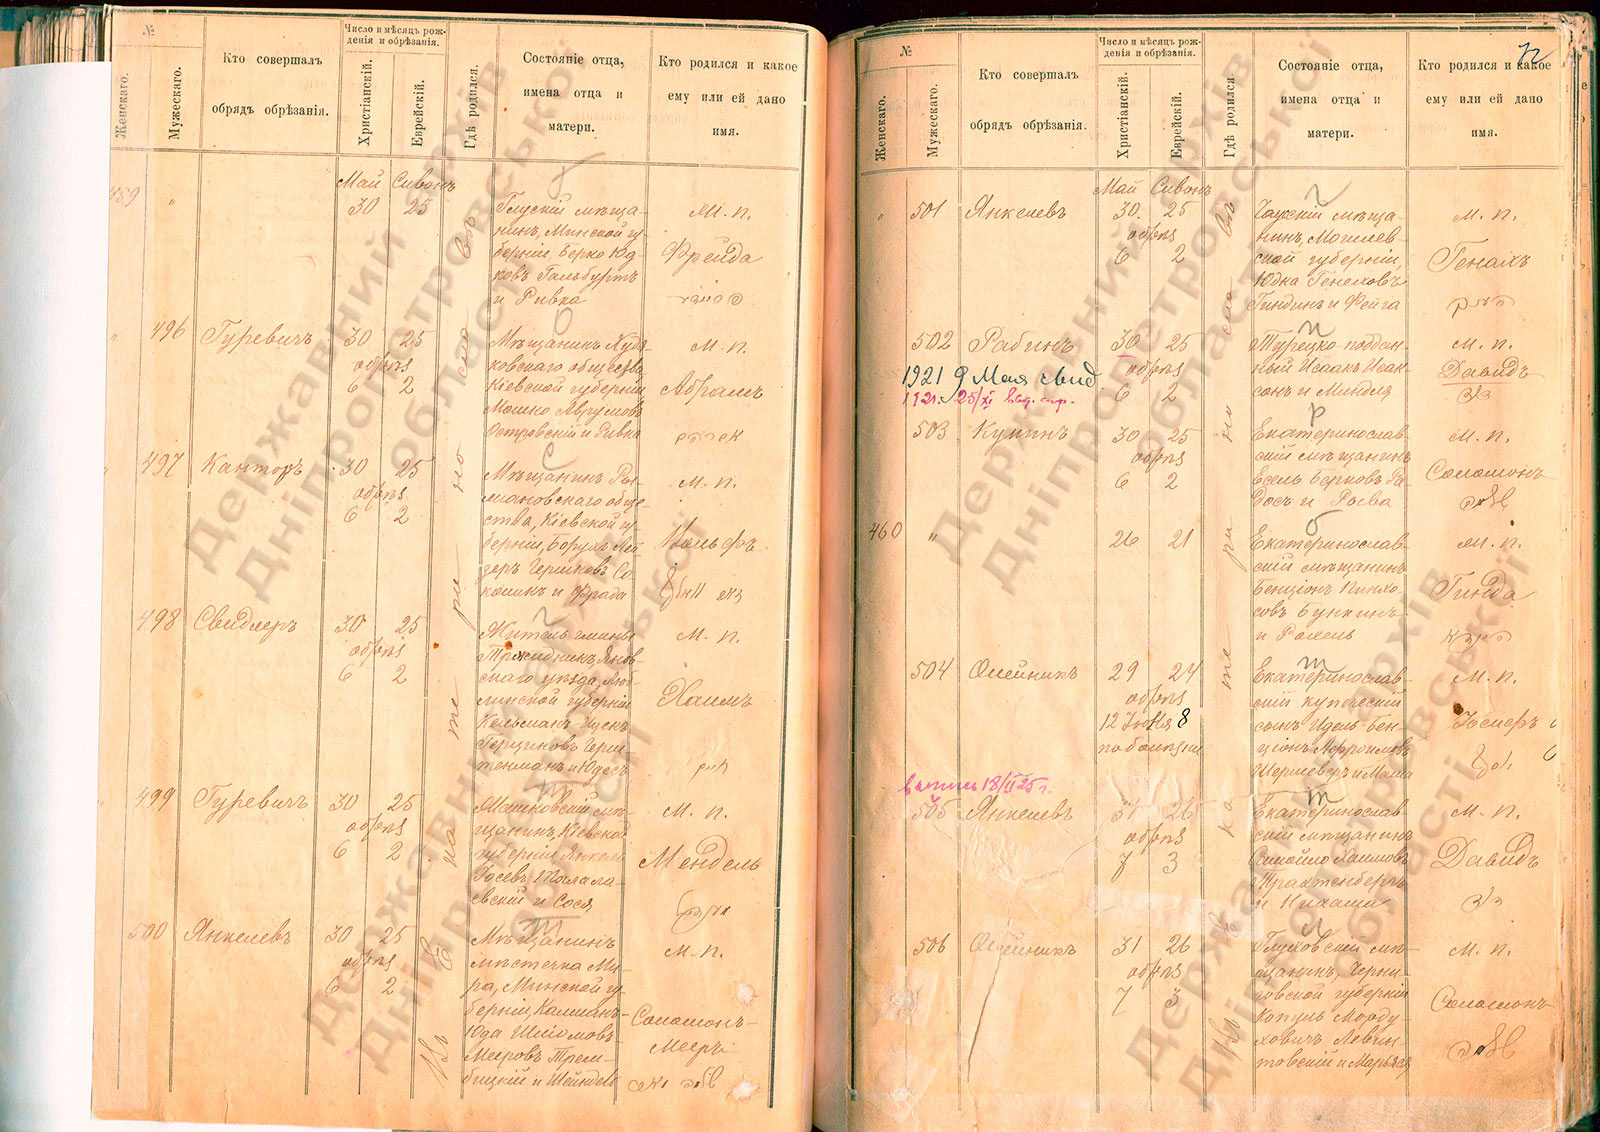 №
Женскаго.
Мужескаго.
Кто совершалъ
обрядъ обрѣзанія.
Число и мѣсяцъ рож-
денія и обрѣзанія.
Христіанскій.
Еврейскій.
Гдѣ родился.
Состояніе отца,
имена отца и
матери.
Кто родился и какое
ему или ей дано
имя.
Май Сивонъ
459 " 30 25
Глускій мѣща-
нинъ, Минской гу-
берніи, Берко Юд-
ковъ Гальбуртъ
и Ривка
м. п.
Фрейда
496 Гуревичъ 30 25
обрѣз
6 2
Мѣщанинъ
ковскаго общества
Кіевской губерніи,
Мошко Аврумовъ
Островскій и Ривка
м. п.
Абрамъ
497 Канторъ 30 25
обрѣз
6 2
Мѣщанинъ Ро-
мановскаго обще-
ства, Кіевской гу-
берніи, Борухъ Лей-
зеръ Гершковъ Со-
колик и Фрада
м. п.
Вольфъ
498 Свидлеръ 30 25
обрѣз
6 2
Житель гмины
Янов-
скаго уѣзда, Люб-
линской губерніи
Кельманъ Ицекъ
и Юдесъ
м. п.
Хаимъ
499 Гуревичъ 30 25
обрѣз
6 2
мѣ-
щанинъ, Кіевской
губерніи Янкель
Іосевъ Талала-
евскій и Сося
м. п.
Мендель
500 Янкелевъ 30 25
обрѣз
6 2
Мѣщанинъ
мѣстечка Ми-
ра, Минской гу-
берніи, Калманъ
Юда Шліомовъ-
Мееровъ Трем-
бицкій и Шейндель
м. п.
Соломонъ-
Мееръ
Въ Екатеринославѣ
№
Женскаго.
Мужескаго.
Кто совершалъ
обрядъ обрѣзанія.
Число и мѣсяцъ рож-
денія и обрѣзанія.
Христіанскій.
Еврейскій.
Гдѣ родился
Состояніе отца,
имена отца и
матери.
Кто родился и какое
ему или ей дано
имя.
72
Май Сивонъ
" 501 Янкелевъ 30. 25
обрѣз
6 2
Чаускій мѣща-
нинъ, Могилев-
ской губерніи,
Юдка Генеховъ
Гиндинъ и Фейга
м. п.
Генахъ
502 Рабинъ 30 25
обрѣз
6 2
Турецко-поддан-
ный Исаакъ Исак-
сонъ и Миндля
м. п.
Давидъ
דוד
1921 9 Мая свид
1921. 25/XI
503 Кунинъ 30 25
обрѣз
6 2
Екатеринослав-
скій мѣщанинъ
Есель Берковъ Ра-
м. п.
Соломонъ
460 " 26 21
Екатеринослав-
скій мѣщанинъ
Бенціонъ Пинхо-
совъ Бункинъ
и Рохель
м. п.
Гинда
504 Олейникъ 29 24
обрѣз
12 Іюня 8
по болѣзни
Екатеринослав-
скій купеческій
сынъ Идель-Бен-
ціонъ
и Маша
м. п.
Іосифъ
18/II 25 г.
505 Янкелевъ 31 26
обрѣз
7 3
Екатеринослав-
скій мѣщанинъ
Самойло Хаимовъ
Трахтенбергъ
и Нихаша
м. п.
Давидъ
דוד
506 Олейникъ 31 26
обрѣз
7 3
Глуховскій мѣ-
щанинъ, Черни-
говской губерніи
Копуль Морду-
ховичъ Левин-
товскій и Марьяся
м. п.
Соломонъ
Въ Екатеринославѣ
Державний архів
Дніпропетровської
області